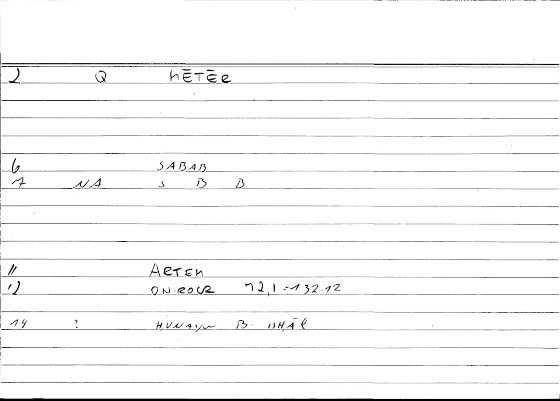 2 Q hĒTĒR
6 SABAB
7 NA S B B
11 ARTEM
12 72,1 = 132.12
14 ? HUNAYN B. ISHĀK